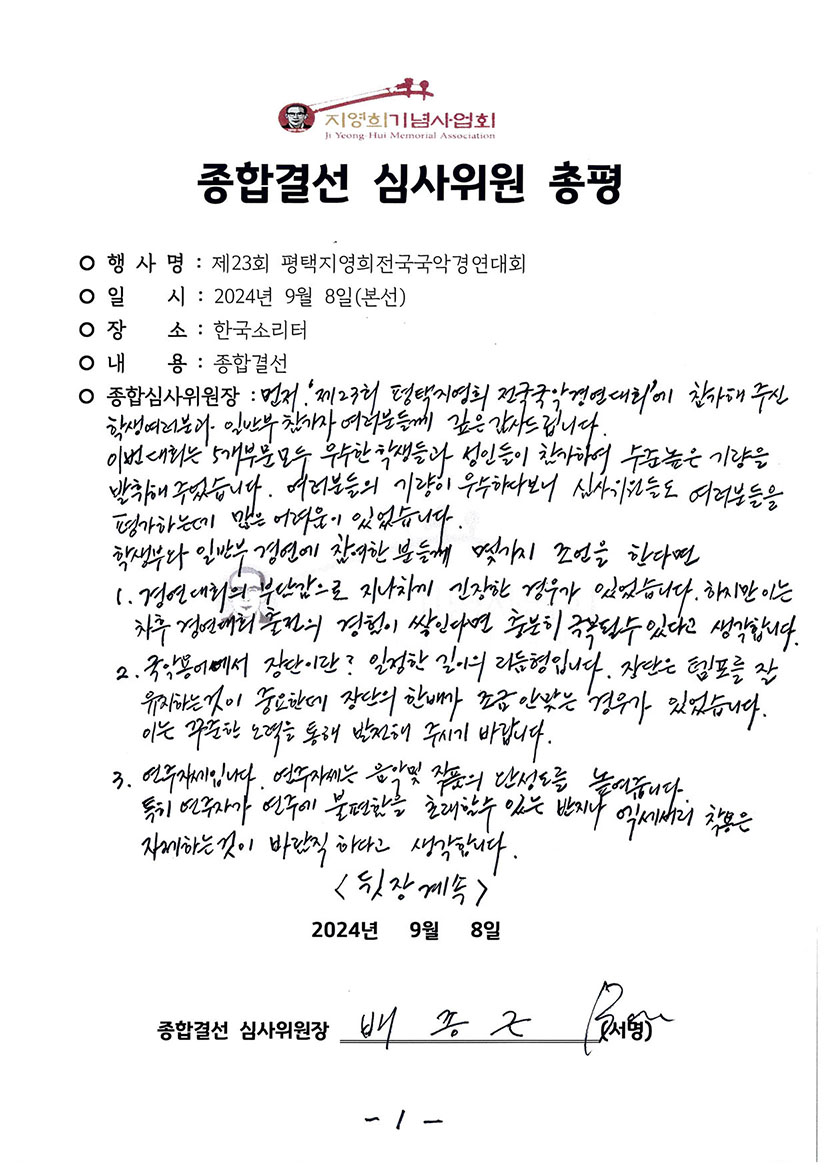 지영희기념사업회
Ji Yeong-Hui Memorial Association
종합결선 심사위원 총평
○ 행 사 명 : 제23회 평택지영희전국국악경연대회
○ 일 시 : 2024년 9월 8일(본선)
○ 장 소 : 한국소리터
○ 내 용 : 종합결선
○ 종합심사위원장 : 먼저 '제23회 평택지영희 전국국악경연대회'에 참가해 주신
학생여러분과 일반부 참가자 여러분들께 깊은 감사드립니다.
이번 대회는 5개부문 모두 우수한 학생들과 성인들이 참가하여 수준높은 기량을
발휘해 주었습니다. 여러분들의 기량이 우수하다보니 심사위원들도 여러분들을
평가하는데 많은 어려움이 있었습니다.
학생부와 일반부 경연에 참여한 분들께 몇가지 조언을 한다면
1. 경연대회의 부담감으로 지나차게 긴장한 경우가 있었습니다. 하지만 이는
차후 경연대회 출전의 경험이 쌓인다면 충분히 극복될수 있다고 생각합니다.
2. 국악용어에서 장단이란? 일정한 길이의 리듬형입니다. 장단은 템포를 잘
유지하는것이 중요한데 장단의 한배가 조금 안맞는 경우가 있었습니다.
이는 꾸준한 노력을 통해 발전해 주시기 바랍니다.
3. 연주자세입니다. 연주자세는 음악및 작품의 완성도를 높여줍니다.
특히 연주자가 연주에 불편함을 초래할수 있는 반지나 악세세리 착용은
자제하는것이 바람직 하다고 생각합니다.
<뒷장계속>
2024년 9월 8일
종합결선 심사위원장 배 종 근 (서명)
- 1 -